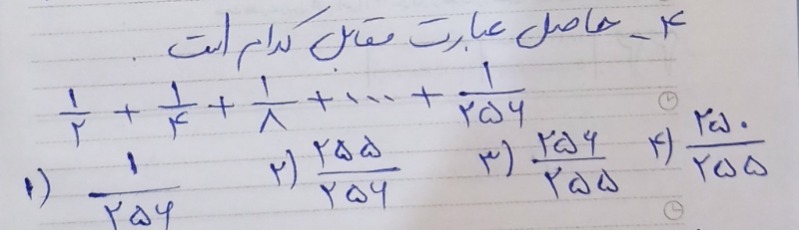 ۴ـ حاصل عبارت مقابل کدام است.
۱/۲ + ۱/۴ + ۱/۸ + ... + ۱/۲۵۶
۱) ۱/۲۵۶ ۲) ۲۵۵/۲۵۶ ۳) ۲۵۶/۲۵۵ ۴) ۲۵۰/۲۵۵